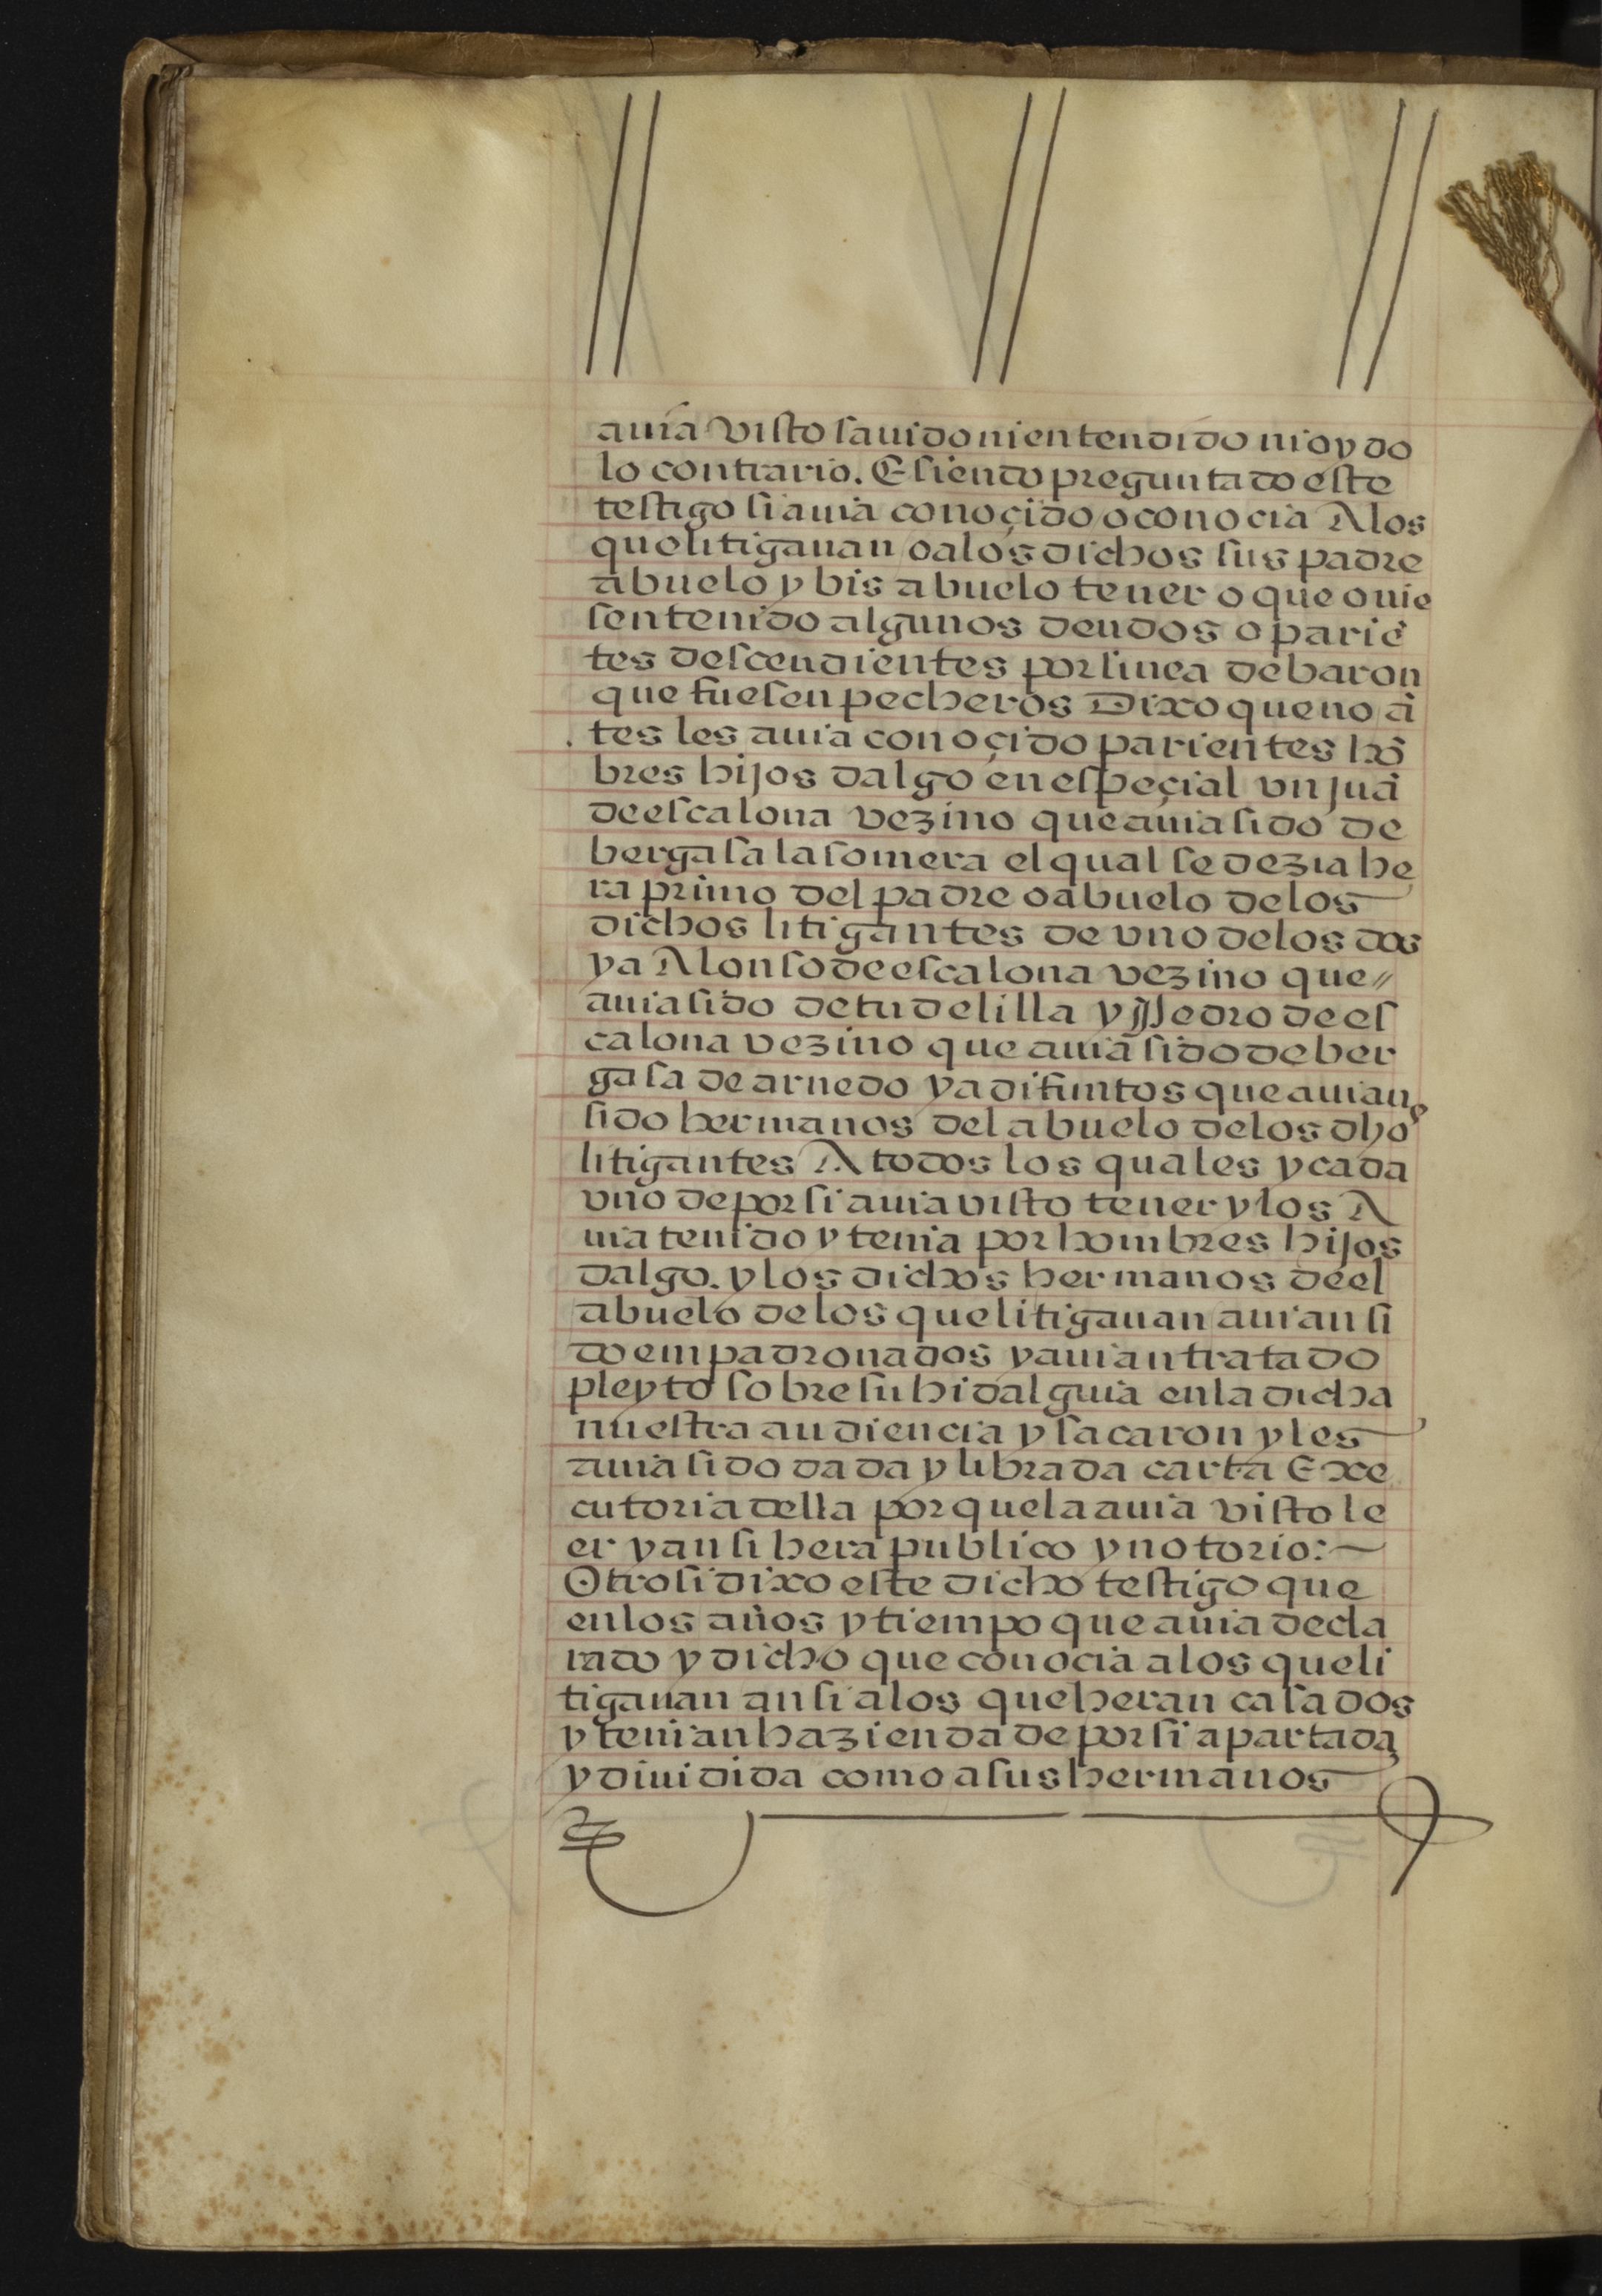 auia visto sauido ni entendido ni oydo
lo contrario. E siendo preguntado este
testigo si auia conoçido o conocia A los
que litigauan o a los dichos sus padre
abuelo y bisabuelo tener o que ouie
sen tenido algunos deudos o pariē
tes descendientes por linea de baron
que fuesen pecheros Dixo que no ā
tes les auia conoçido parientes hō
bres hijos dalgo en espeçial vn juā
de escalona vezino que auia sido de
bergasa la somera el qual se dezia he
ra primo del padre o abuelo de los
dichos litigantes de vno de los dos
y a Alonso de escalona vezino que
auia sido de tudelilla y Pedro de es
calona vezino que auia sido de ber
gasa de arnedo ya difuntos que auian
sido hermanos del abuelo de los dhos
litigantes A todos los quales y cada
vno de por si auia visto tener y los A
uia tenido y tenia por hombres hijos
dalgo. y los dichos hermanos de el
abuelo de los que litigauan auian si
do empadronados y auian tratado
pleyto sobre su hidalguia en la dicha
nuestra audiencia y sacaron y les
auia sido dada y librada carta Exe
cutoria della porque la auia visto le
er y ansi hera publico y notorio:~
Otrosi dixo este dicho testigo que
en los años y tiempo que auia decla
rado y dicho que conocia a los que li
tigauan ansi a los que heran casados
y tenian hazienda de por si apartada
y diuidida como a sus hermanos